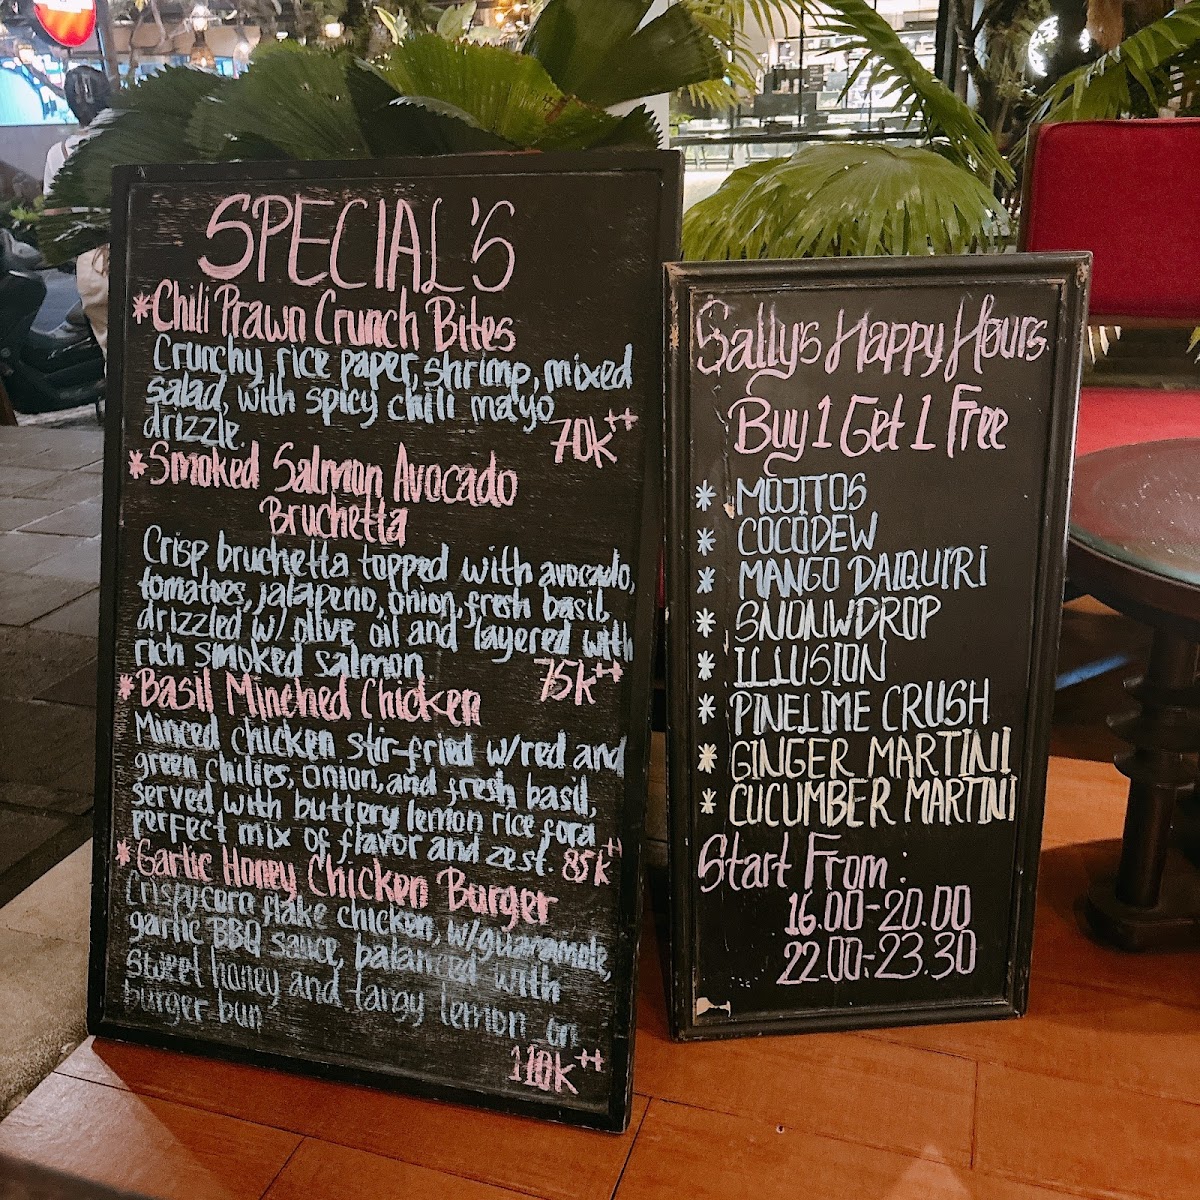 SPECIAL'S
*Chili Prawn Crunch Bites
Crunchy rice paper, shrimp, mixed
salad, with spicy chili mayo
drizzle.
70k++
*Smoked Salmon Avocado
Bruchetta
Crisp bruchetta topped with avocado,
tomatoes, jalapeno, onion, fresh basil,
drizzled w/ olive oil and layered with
rich smoked salmon
75k++
*Basil Minched Chicken
Minced chicken stir-fried w/red and
green chilies, onion, and fresh basil,
served with buttery lemon rice for a
perfect mix of flavor and zest.
85k++
*Garlic Honey Chicken Burger
Crispy corn flake chicken, w/guaramole,
garlic BBQ sauce, balanced with
sweet honey and tangy lemon on
burger bun
110k++
Sally's Happy Hours
Buy 1 Get 1 Free
* MOJITOS
* COCODEW
* MANGO DAIQUIRI
* SNONWDROP
* ILLUSION
* PINELIME CRUSH
* GINGER MARTINI
* CUCUMBER MARTINI
Start From :
16.00-20.00
22.00-23.30